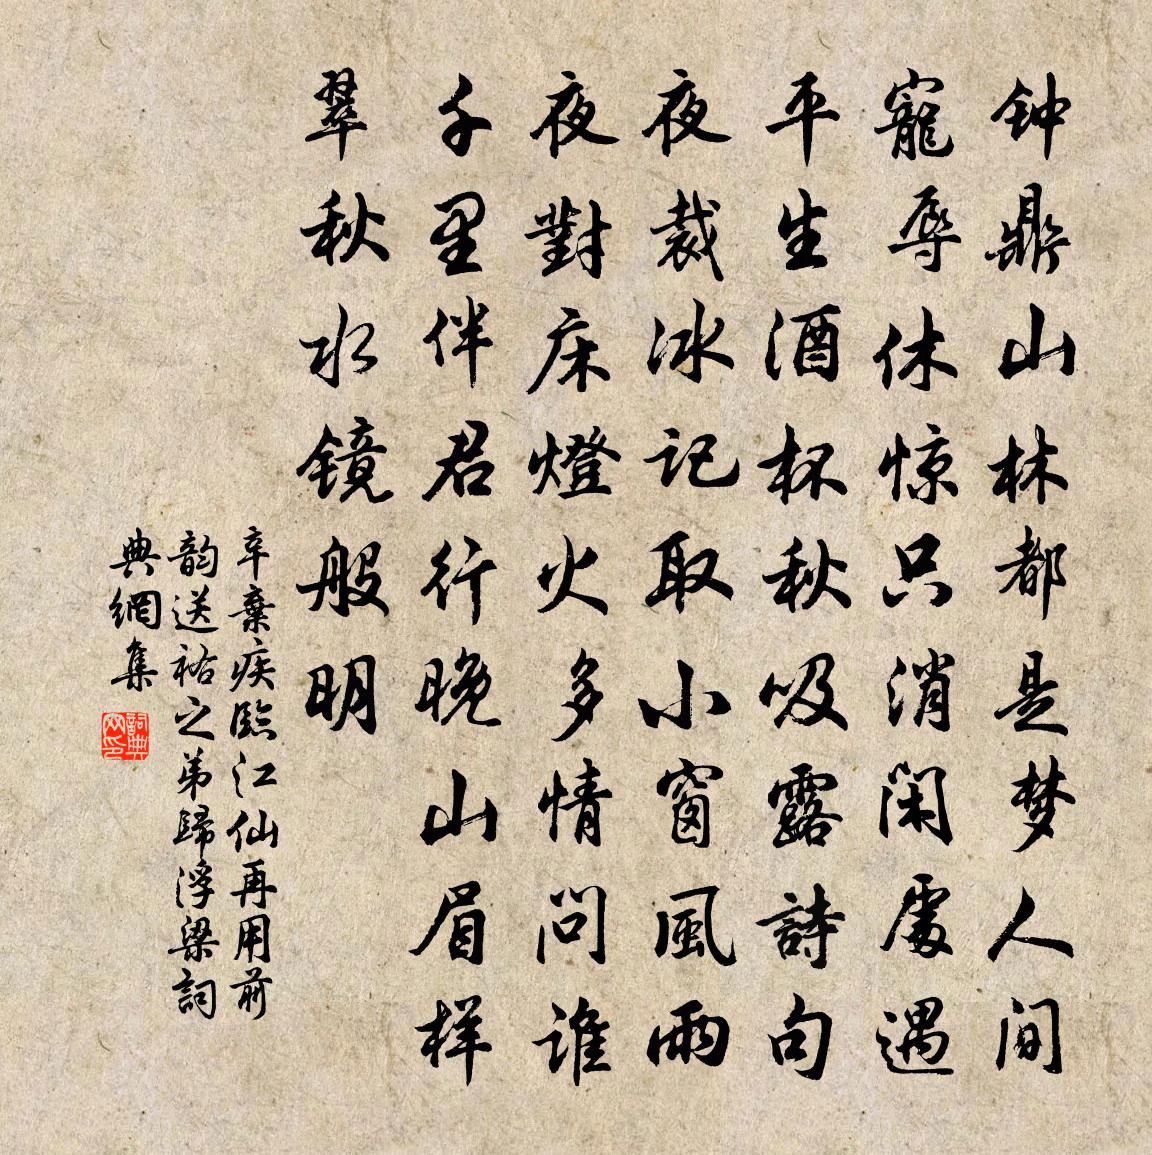 钟鼎山林都是梦人间
寵辱休惊只消闲處遇
平生酒杯秋吸露詩句
夜裁冰记取小窗風雨
夜對床燈火多情问谁
千里伴君行晚山眉样
翠秋水镜般明
辛棄疾臨江仙再用前
韵送祐之弟歸浮梁詞
典網集
詞典网印